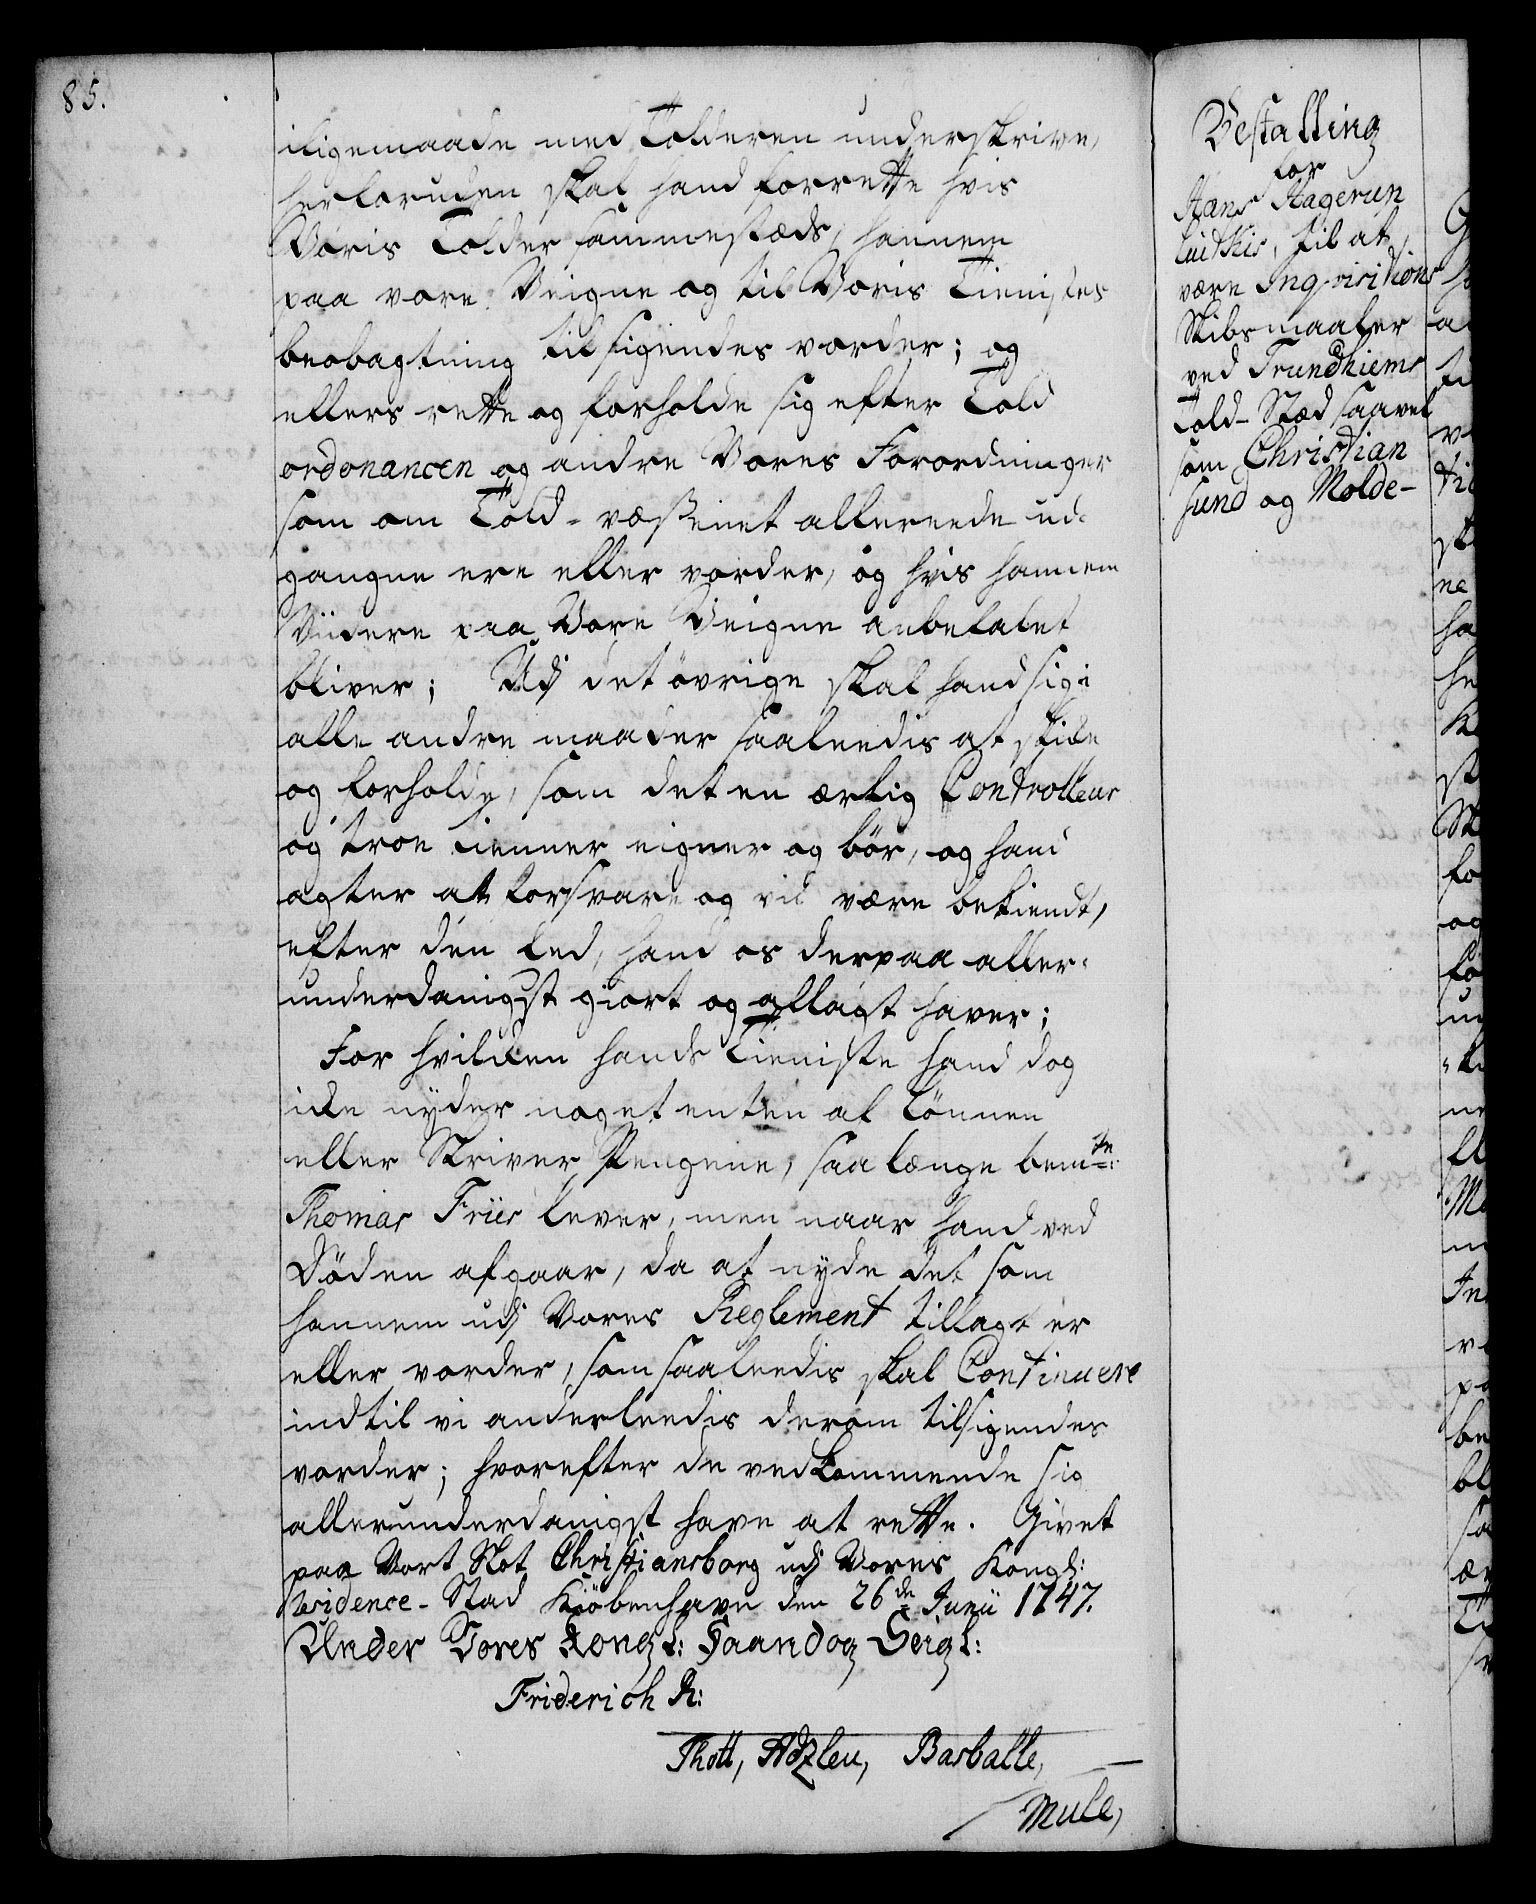 85.
iligemaade med Tolderen underskrive,
herforuden skal hand forrette hvis
Voris Tolder sammestæds, hannem
paa vore Veigne og til Voris Tienistes
beobagtning tilsigendes vorder; og
ellers rette og forholde sig efter Told
ordonancen og andre Vores Forordninger
som om Told-væssenet allereede ud-
gangne ere eller vorder, og hvis hannem
Viidere paa Vore Veigne anbefalet
bliver; Udj det övrige skal hand sig i
alle andre maader saaleedis at skike
og forholde, som det en ærlig Controlleur
og troe Tienner eigner og bör, og hand
agter at forsvare og vil være bekiendt,
efter den Eed, hand os derpaa aller-
underdanigst giort og aflagt haver;
For hvilken hands Tieniste hand dog
icke nyder noget enten af Lönnen
eller Skriver Pengene, saa længe bemte:
Thomas Friis lever, men naar hand ved
Döden afgaar, da at nyde det som
hannem udj Vores Reglement tillagt er
eller vorder, som saaleedis skal Continuere
indtil vi anderleedis derom tilsigendes
vorder; hvorefter de vedkommende sig
allerunderdanigst have at rette. Givet
paa Vort Slot Christiansborg udj Vores Kongl:
Residence-Stad Kiöbenhavn den 26de Junii 1747.
Under Vores Kongl: Haand og Seigl:
Friderich R:
Thott, Adzleu, Barballe,
Mule,
Bestalling
for
Hans Hagerup
til at
være Inqvisitions
Skibsmaaler
ved Trundhiems
Told-Stæd saavel
som Christian
sund og Molde-